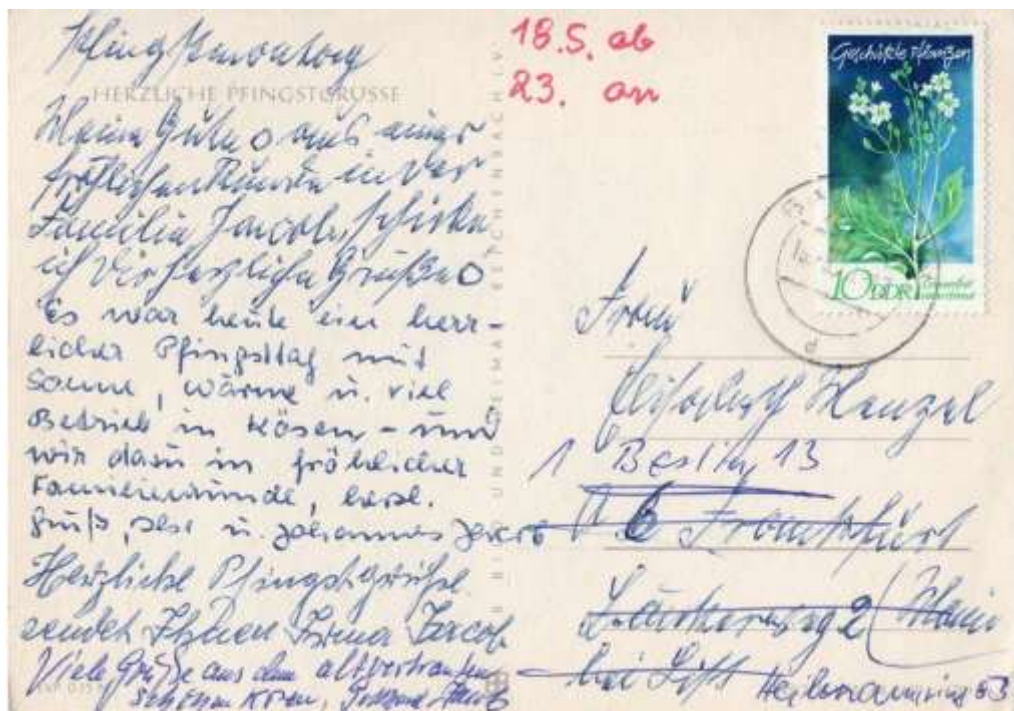 Pfingstsonntag
HERZLICHE PFINGSTGRÜSSE
Meine Gute aus einer
fröhlichen Runde in der
Familie Jacob, schicke
ich Dir herzliche Grüße
Es war heute ein herr-
licher Pfingsttag mit
Sonne, Wärme u. viel
Betrieb in Kösen - und
wir dazu in fröhlicher
Familienrunde, herzl.
Gruß, u. Johannes
Herzliche Pfingstgrüße
sendet Ihnen Irma Jacob
Viele Grüße aus dem altvertrauten
schönen Kösen,
18.5. ab
23. an
Geschützte Pflanzen
10 DDR
Frau
Elisabeth Menzel
1 Berlin, 13
6 Frankfurt
2 (Main
bei
Heilmannring 53